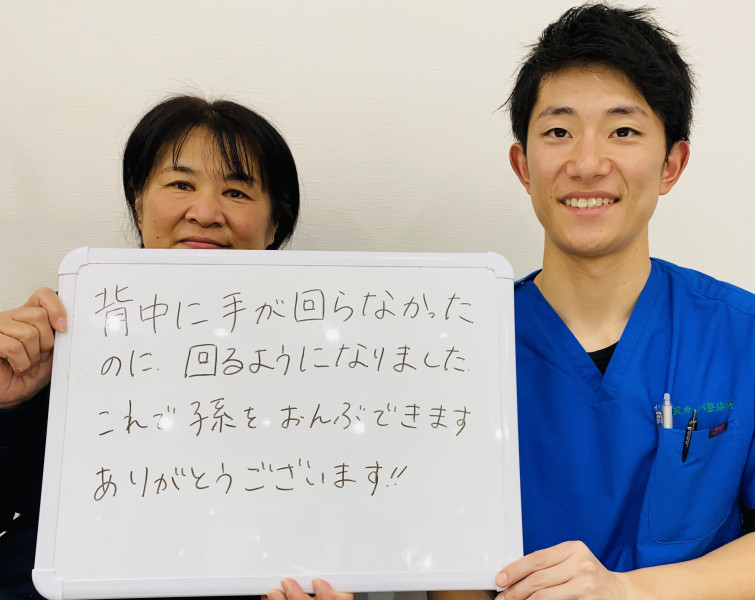 背中に手が回らなかった
のに、回るようになりました
これで孫をおんぶできます
ありがとうございます!!
整体